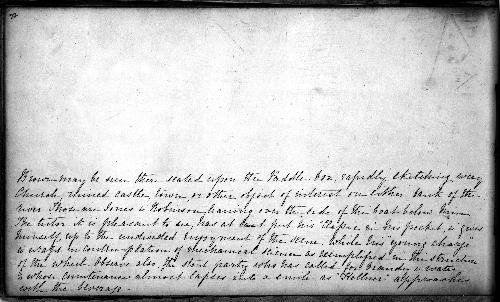 Brown may be seen there seated upon the Paddle-box, rapidly sketching every
Church, ruined castle, town, or other object of interest on either bank of the
river. Those are Jones & Robinson, leaning over the side of the boat below him.
The tutor it is pleasant to see, has at last put his "Classic" in his pocket, & gives
himself up to the undivided enjoyment of the scene. While his young charge
is wrapt in contemplation of mechanical science as exemplified in the structure
of the wheel. Observe also the stout party who has called for brandy & water,
& whose countenance almost lapses into a smile as "Kellner" approaches
with the beverage.